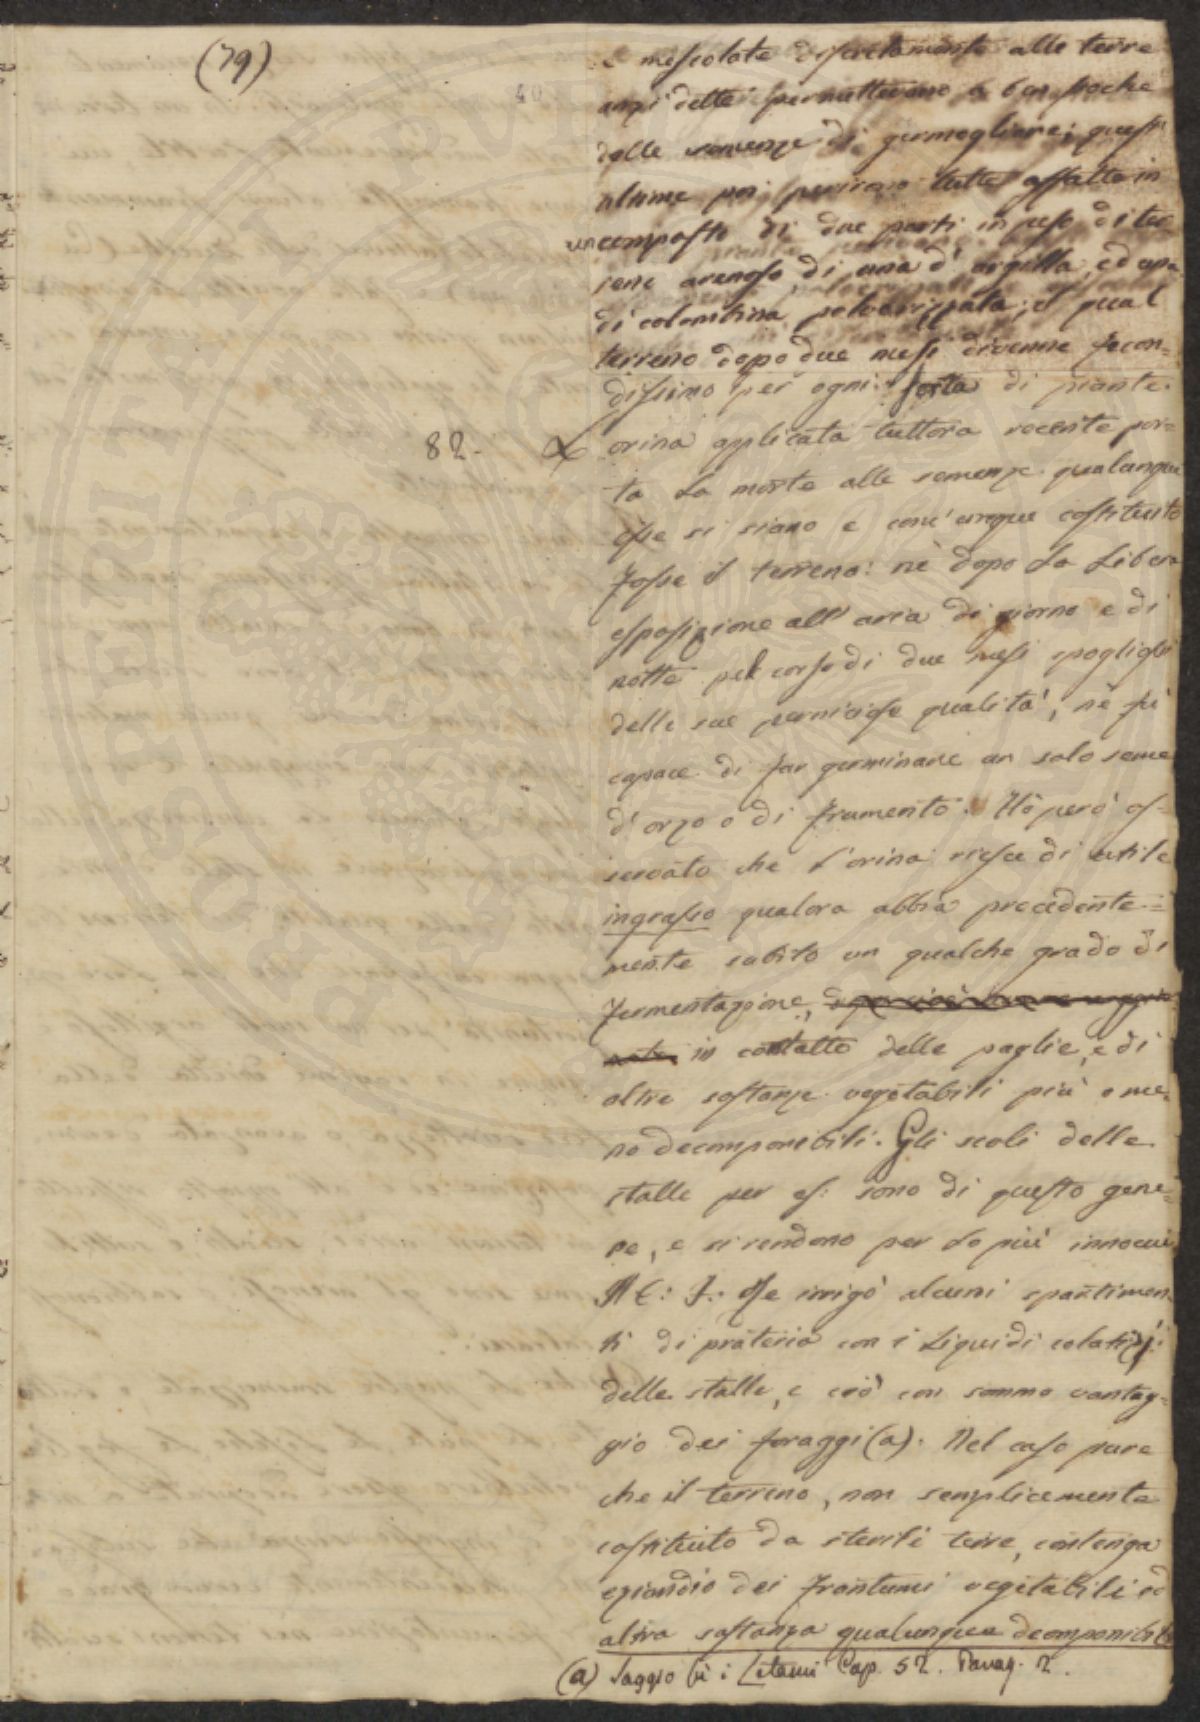 (79)
40
e mescolate discretamente alle terre
anzi dette permettevano a ben poche
delle semenze di germogliare; quest'
ultime poi perirono tutte affatto in
un composto di due parti in peso di ter-
reno arenoso, di una d'argilla, ed una
di colombina polverizzata; il qual
terreno dopo due mesi divenne fecon=
dissimo per ogni sorta di piante.
82. orina applicata tuttora recente por=
ta la morte alle semenze qualunque
esse si siano e com'unque costituito
fosse il terreno: nè dopo la libera
esposizione all'aria di giorno e di
notte pel corso di due mesi spogliossi
delle sue perniciose qualità; nè fù
capace di far germinare un solo seme
d'orzo o di frumento. Hò però os-
servato che l'orina riesce di utile
ingrasso qualora abbia precedente=
mente subito un qualche grado di
fermentazione,
in contatto delle paglie, e di
altre sostanze vegetabili più o me-
no decomponibili. Gli scoli delle
stalle per es: sono di questo gene=
re, e si rendono per lo più innocui
Re irrigò alcuni spartimen-
ti di prateria con i liquidi colatizj
delle stalle, e ciò con sommo vantag-
gio dei foraggi (a). Nel caso pure
che il terreno, non semplicemente
costituito da sterili terre, contenga
eziandio dei frantumi vegetabili ed
altra sostanza qualunque decomponibile
(a) Saggio sù i Letami Cap. 52. Parag. 2.